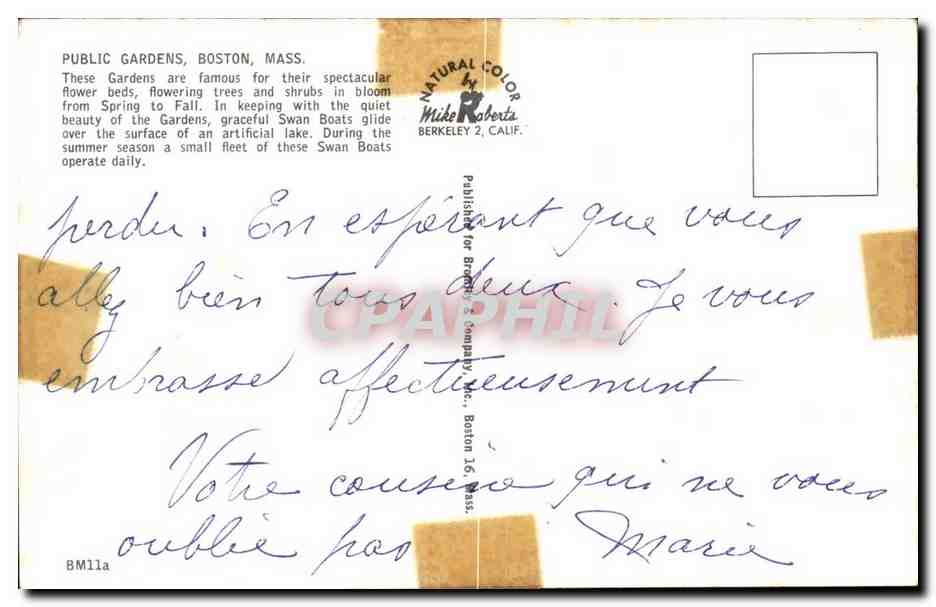 PUBLIC GARDENS, BOSTON, MASS.
These Gardens are famous for their spectacular
flower beds, flowering trees and shrubs in bloom
from Spring to Fall. In keeping with the quiet
beauty of the Gardens, graceful Swan Boats glide
over the surface of an artificial lake. During the
summer season a small fleet of these Swan Boats
operate daily.
NATURAL COLOR
by
Mike Roberts
BERKELEY 2, CALIF.
Published for Bromley & Company, Inc., Boston 16, Mass.
perdu. En espérant que vous
allez bien tous deux. Je vous
embrasse affectueusement
Votre cousine qui ne vous
oublie pas Marie
CPAPHIL
BM11a